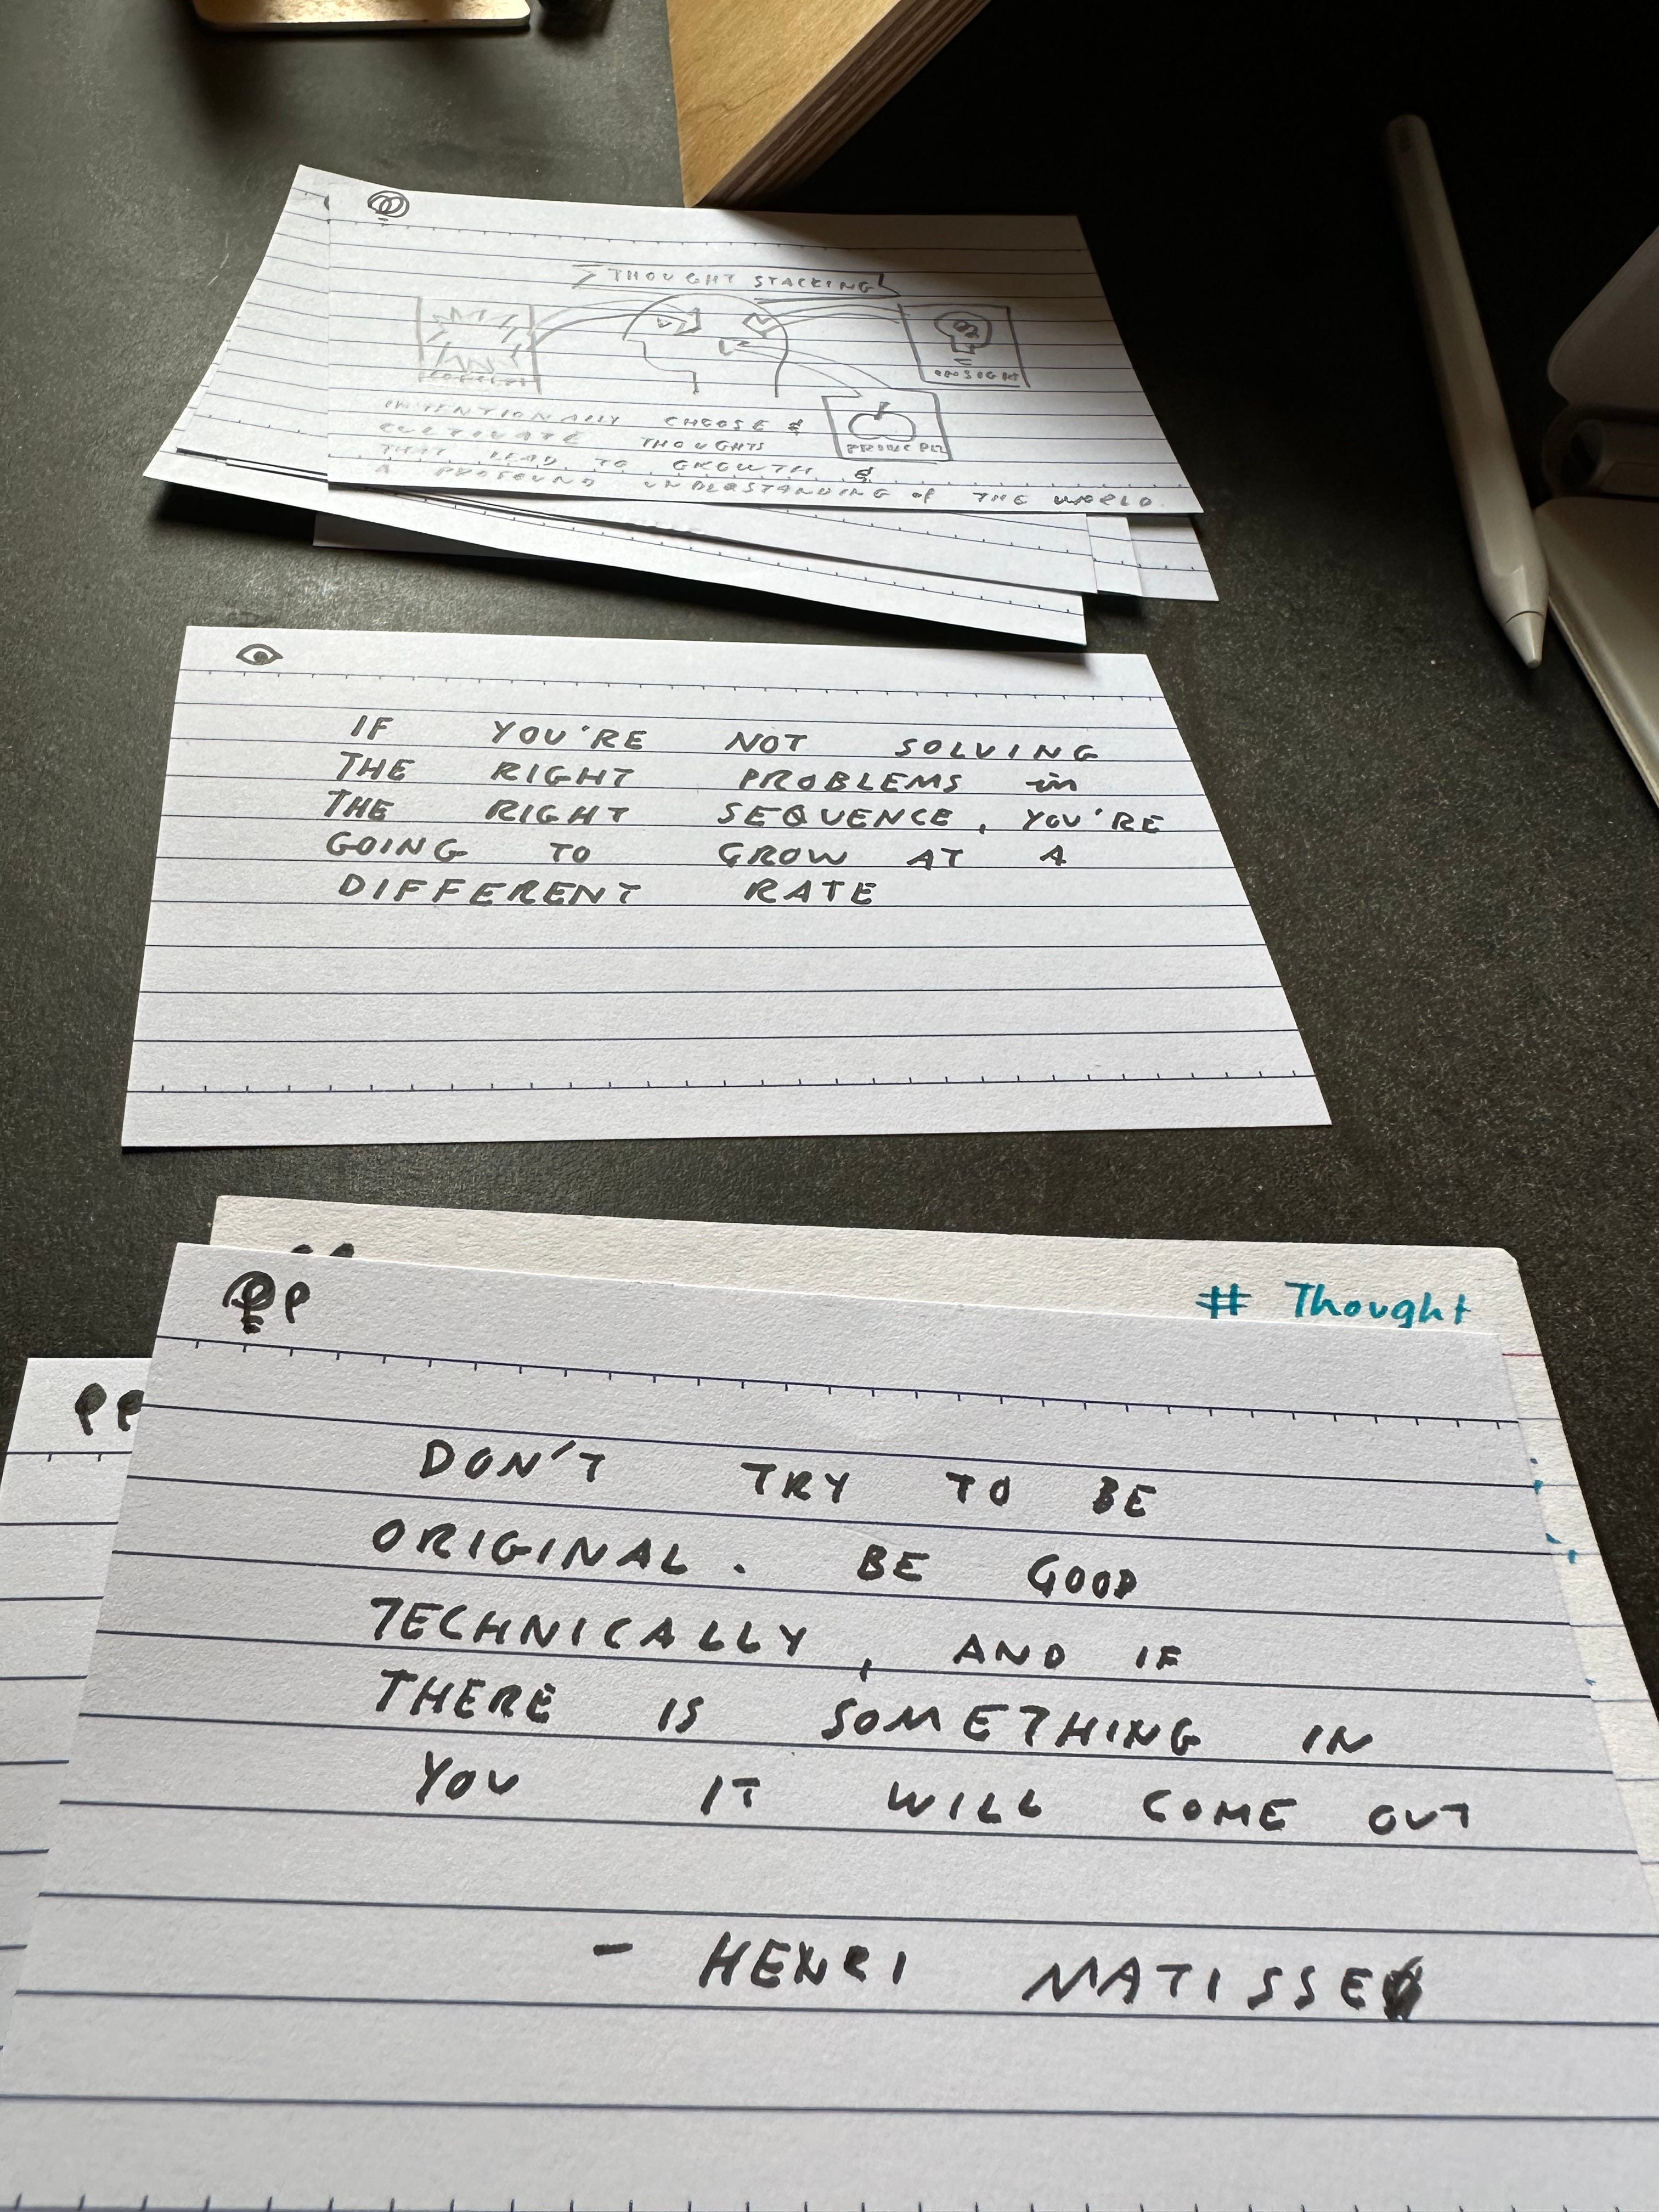 THOUGHT STACKING
INSIGHT
INTENTIONALLY CHOOSE &
CULTIVATE THOUGHTS
THAT LEAD TO GROWTH &
A PROFOUND UNDERSTANDING of THE WORLD
IF YOU'RE NOT SOLVING
THE RIGHT PROBLEMS in
THE RIGHT SEQUENCE, YOU'RE
GOING TO GROW AT A
DIFFERENT RATE
# Thought
DON'T TRY TO BE
ORIGINAL. BE GOOD
TECHNICALLY, AND IF
THERE IS SOMETHING IN
YOU IT WILL COME OUT
- HENRI MATISSE